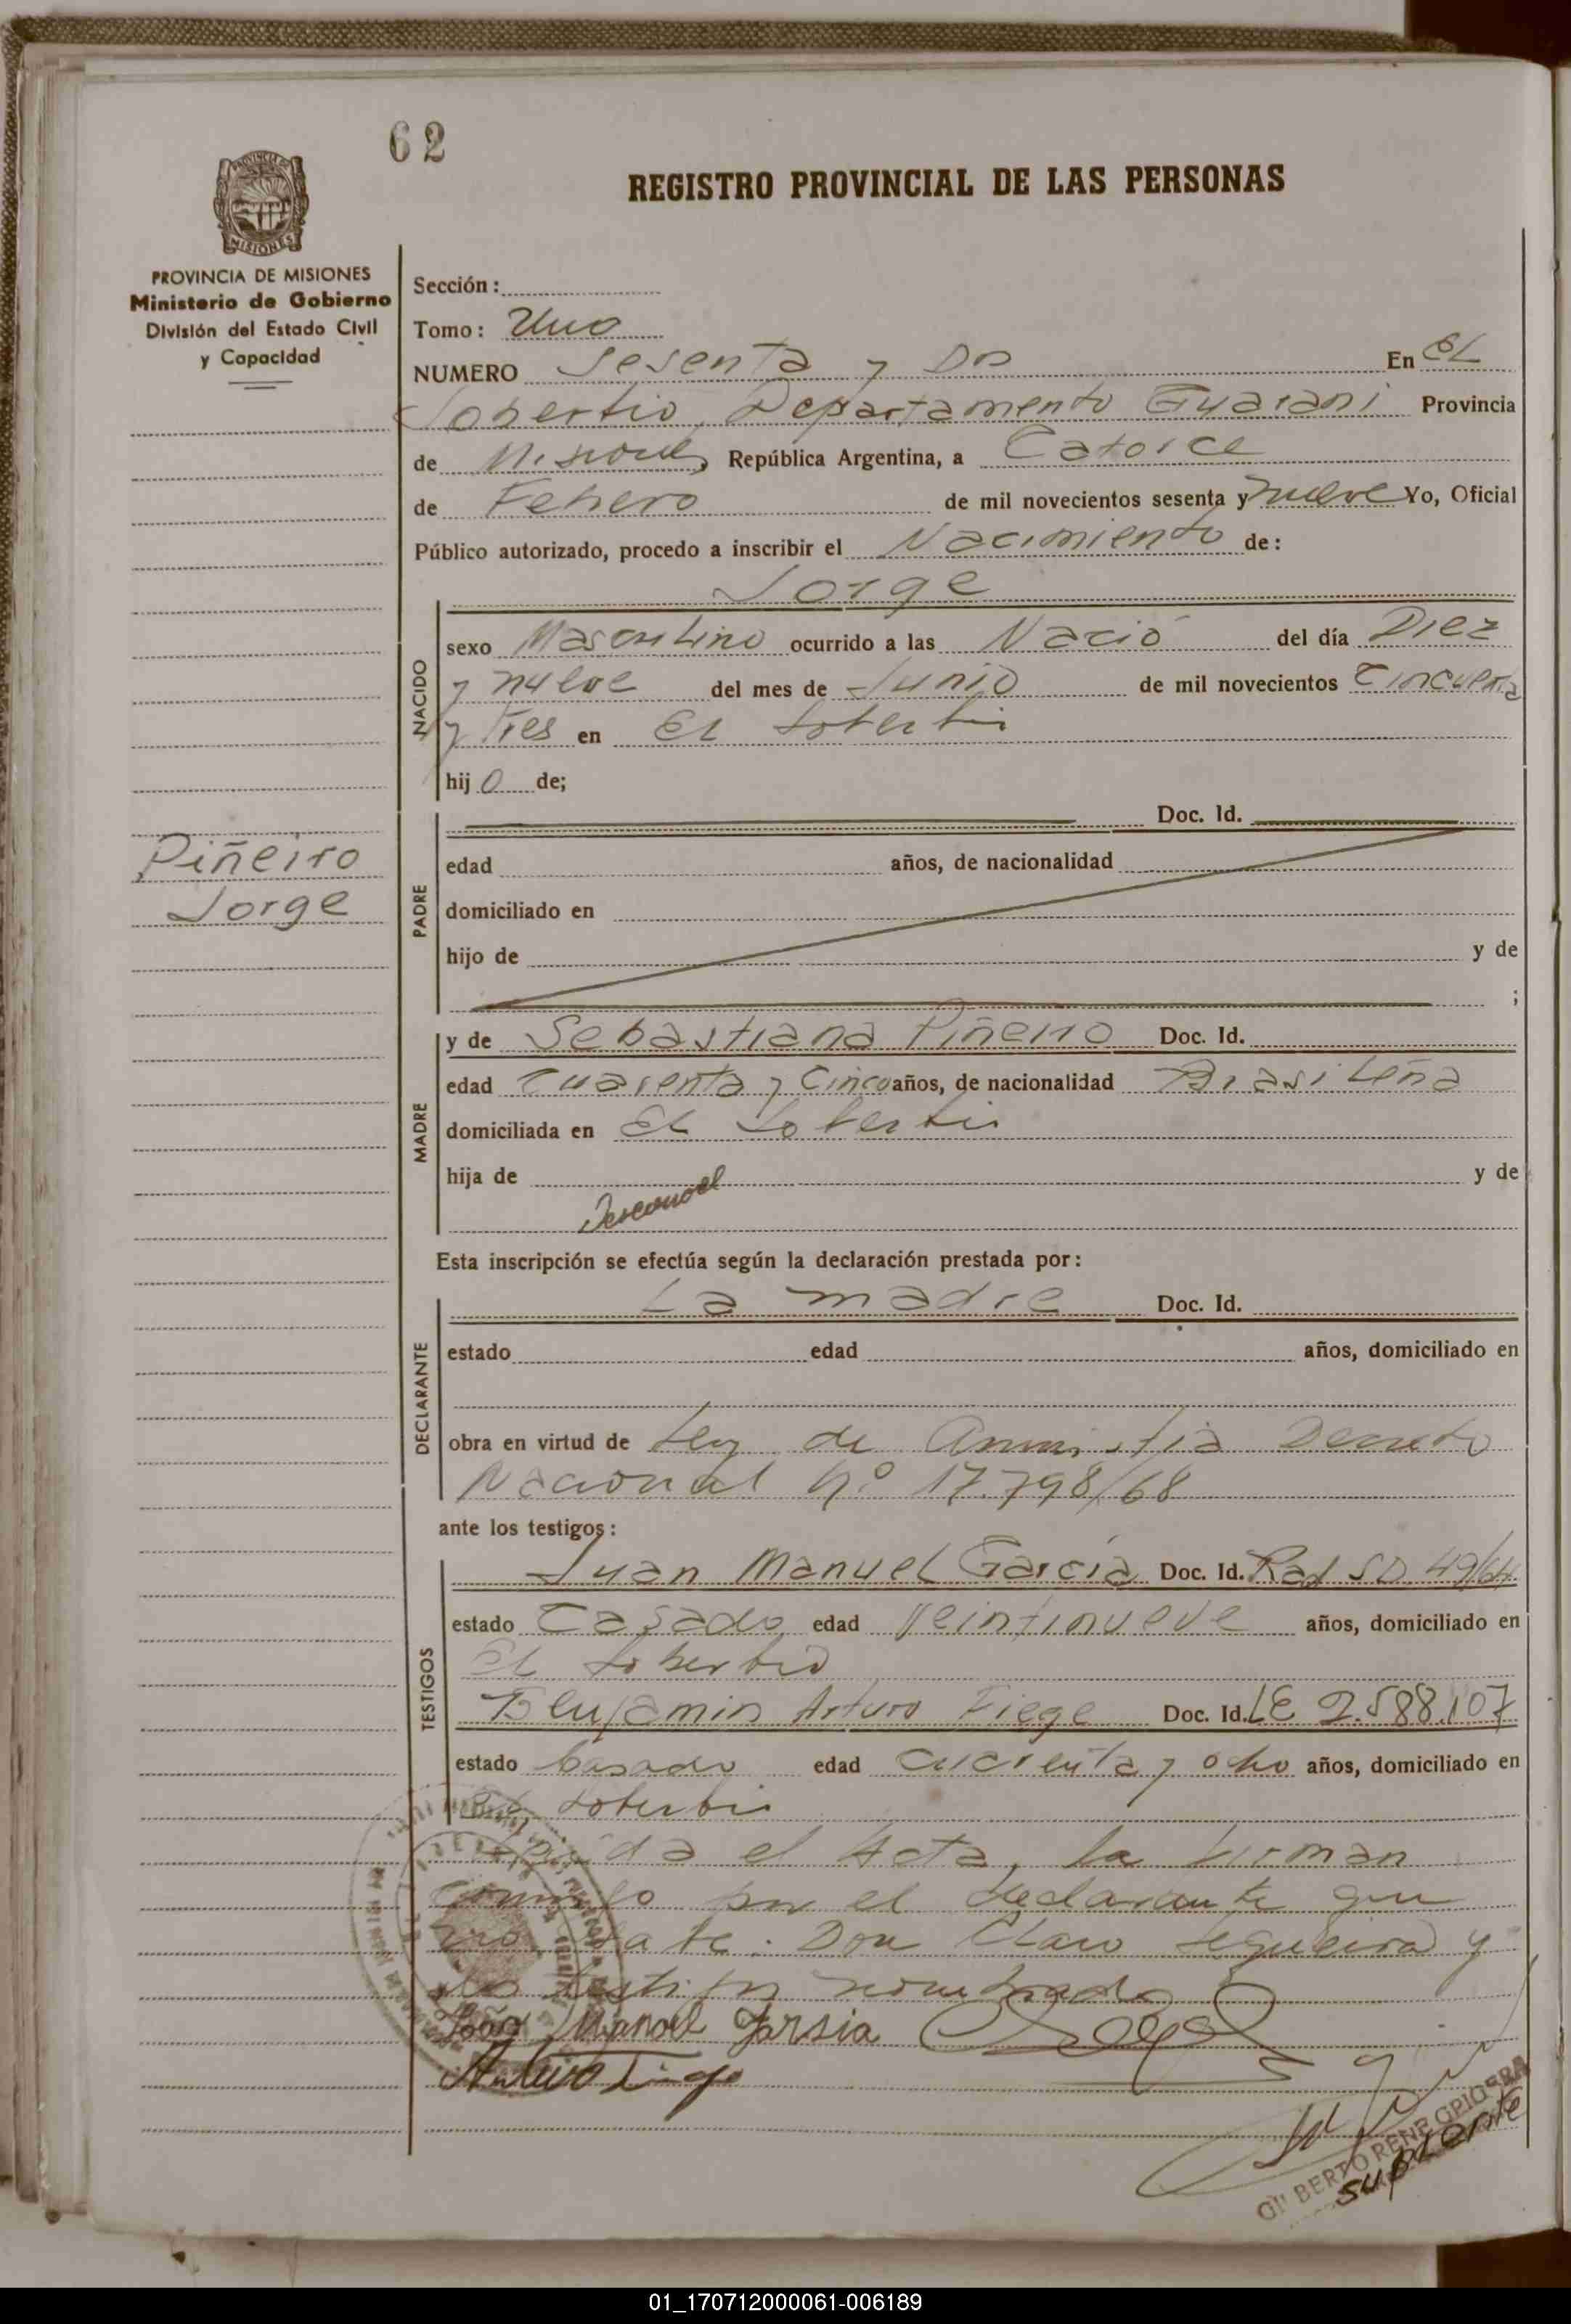 62
REGISTRO PROVINCIAL DE LAS PERSONAS
PROVINCIA DE
MISIONES
PROVINCIA DE MISIONES
Ministerio de Gobierno
División del Estado Civil
y Capacidad
Sección:
Tomo: Uno
NUMERO Sesenta y Dos En EL
Soberbio, Departamento Guarani Provincia
de Misiones, República Argentina, a Catorce
de Febrero de mil novecientos sesenta y nueve Yo, Oficial
Público autorizado, procedo a inscribir el Nacimiento de:
Jorge
NACIDO
sexo Masculino ocurrido a las Nació del día Diez
y nueve del mes de Junio de mil novecientos Cincuenta
y Tres en El Soberbio
hijo de;
Piñeiro
Jorge
PADRE
Doc. Id.
edad años, de nacionalidad
domiciliado en
hijo de y de
;
MADRE
y de Sebastiana Piñeiro Doc. Id.
edad Cuarenta y Cinco años, de nacionalidad Brasileña
domiciliada en El Soberbio
hija de y de
Desconoce
Esta inscripción se efectúa según la declaración prestada por:
DECLARANTE
La madre Doc. Id.
estado edad años, domiciliado en
obra en virtud de Ley de Amnistia Decreto
Nacional Nº 17.798/68
ante los testigos:
TESTIGOS
Juan Manuel Garcia Doc. Id. Rad SD 49/64
estado Casado edad Veintinueve años, domiciliado en
El Soberbio
Benjamin Arturo Fiege Doc. Id. LE 2.588.107
estado Casado edad cuarenta y ocho años, domiciliado en
El Soberbio
Leida el Acta, la firman
conmigo por el declarante que
no sabe. Don Claro Sequeira y
los testigos nombrados
João Manoel Garsia
Arturo Fiege
GILBERTO RENE
suplente
01_170712000061-006189